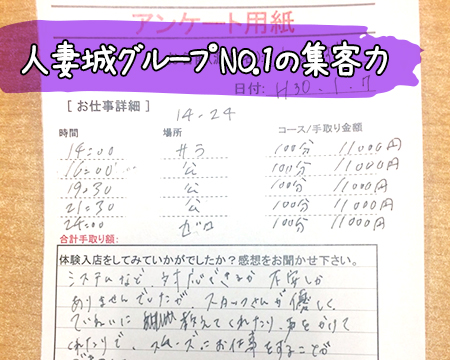 アンケート用紙
人妻城グループNO.1の集客力
日付: H30.1.7
[お仕事詳細] 14-24
時間 場所 コース/手取り金額
14:00 サラ 100分 11000円
16:00 公 100分 11000円
19:30 公 100分 11000円
21:30 公 100分 11000円
24:00 ゼロ 100分 11000円
合計手取り額:
体験入店をしてみていかがでしたか?感想をお聞かせ下さい。
システムなど 対応できるか 不安しか
ありませんでしたが スタッフさんが優しく
ていねいに 教えてくれたり、声をかけて
くれたりで、スムーズにお仕事をすることが